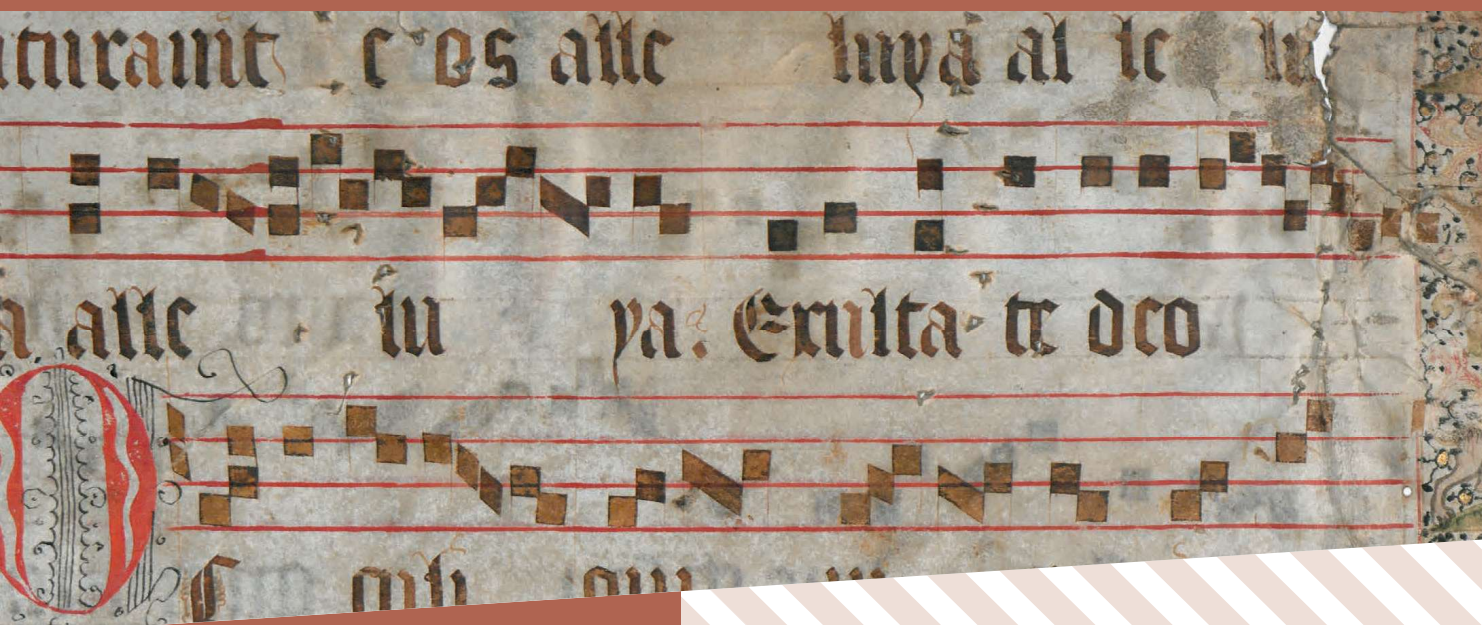 turauit e os alle luya al le lu
a alle lu ya. Exulta te deo